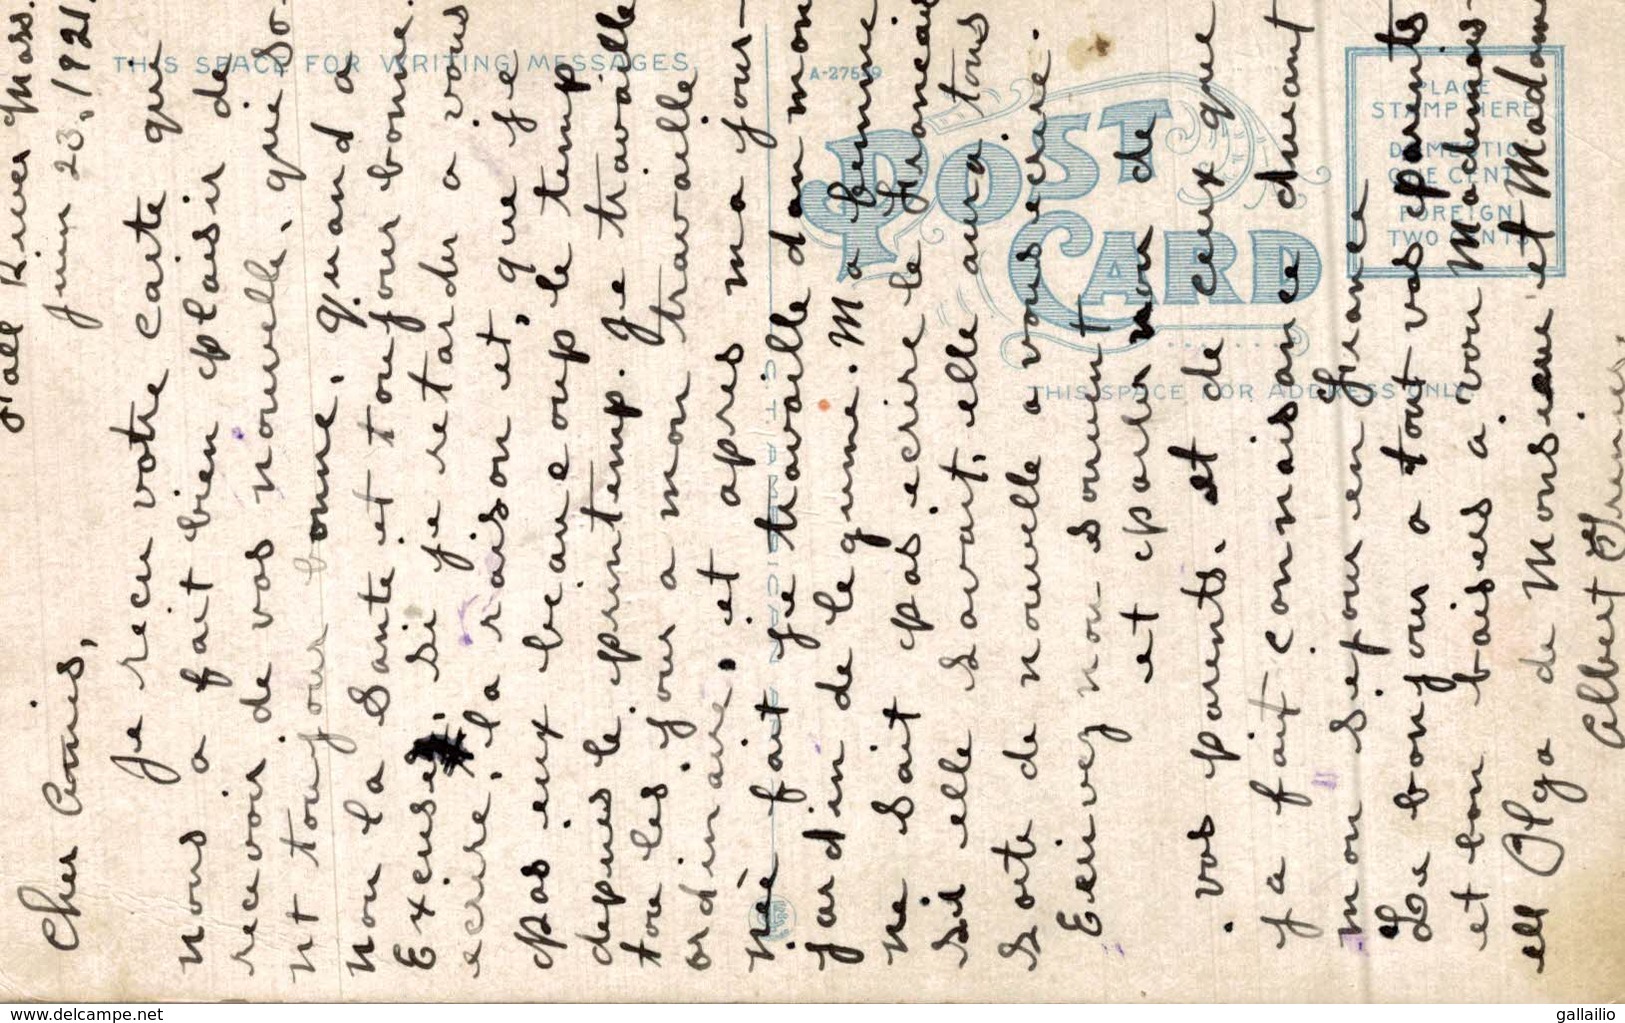 Fall River Mass.
Juin 23, 1921.
Cher Amies,
Je recu votre carte qui
nous a fait bien plaisir de
recevoir de vos nouvelle, que so-
nt toujour bonne, quand a
nou la Sante et toujour bonne.
Excuse, si je retarder a vous
ecrire, la raison et, que je
pas eux beaucoup le temp
depues le printemp. Je travaille
tou les jour a mon travaille
ordinaire, et apres ma jour-
nèe fait je travaille dan mon
jardin de legume. Ma femme
ne sait pas ecrire le Francais
Si elle savait, elle aura tous
Sorte de nouvelle a vous ecrire.
Ecrivez nou souvent
et parler nou de
vos parents, et de ceux que
ja fait connaisance durant
mon sejour en France
Le bonjour a tout vos parents
et bon baisers a vou Mademois-
ell Olga de Monsieur et Madame
Albert Grenier.
THIS SPACE FOR WRITING MESSAGES
A-27539
POST CARD
THIS SPACE FOR ADDRESS ONLY
PLACE
STAMP HERE
DOMESTIC
ONE CENT
FOREIGN
TWO CENTS
delcampe.net
gallailio